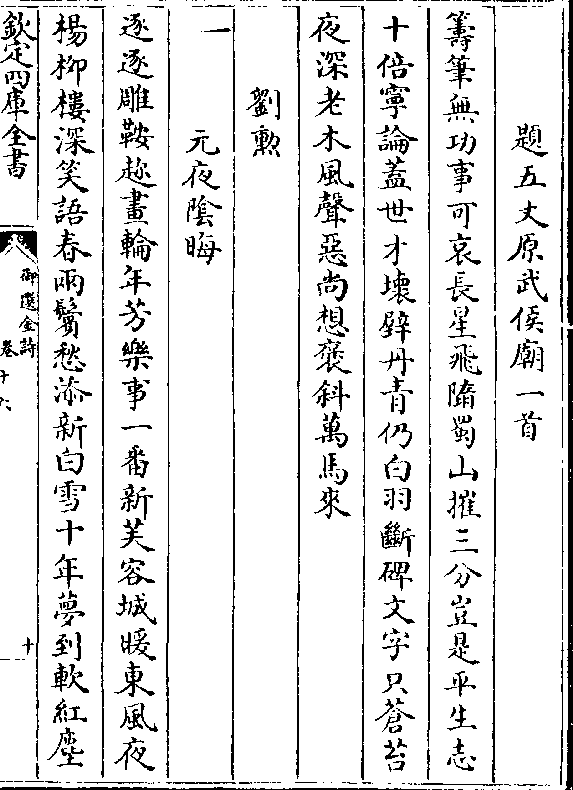 題五丈原武侯廟一首
籌筆無功事可哀長星飛隕蜀山摧三分豈是平生志
十倍寧論蓋世才壞壁丹青仍白羽斷碑文字只蒼苔
夜深老木風聲惡尚想褒斜萬馬來
劉勲
一
元夜陰晦
逐逐雕鞍趂畫輪年芳樂事一番新芙容城暖東風夜
楊柳樓深笑語春兩鬢愁添新白雪十年夢到軟紅塵
欽定四庫全書
御選金詩
卷十六
十